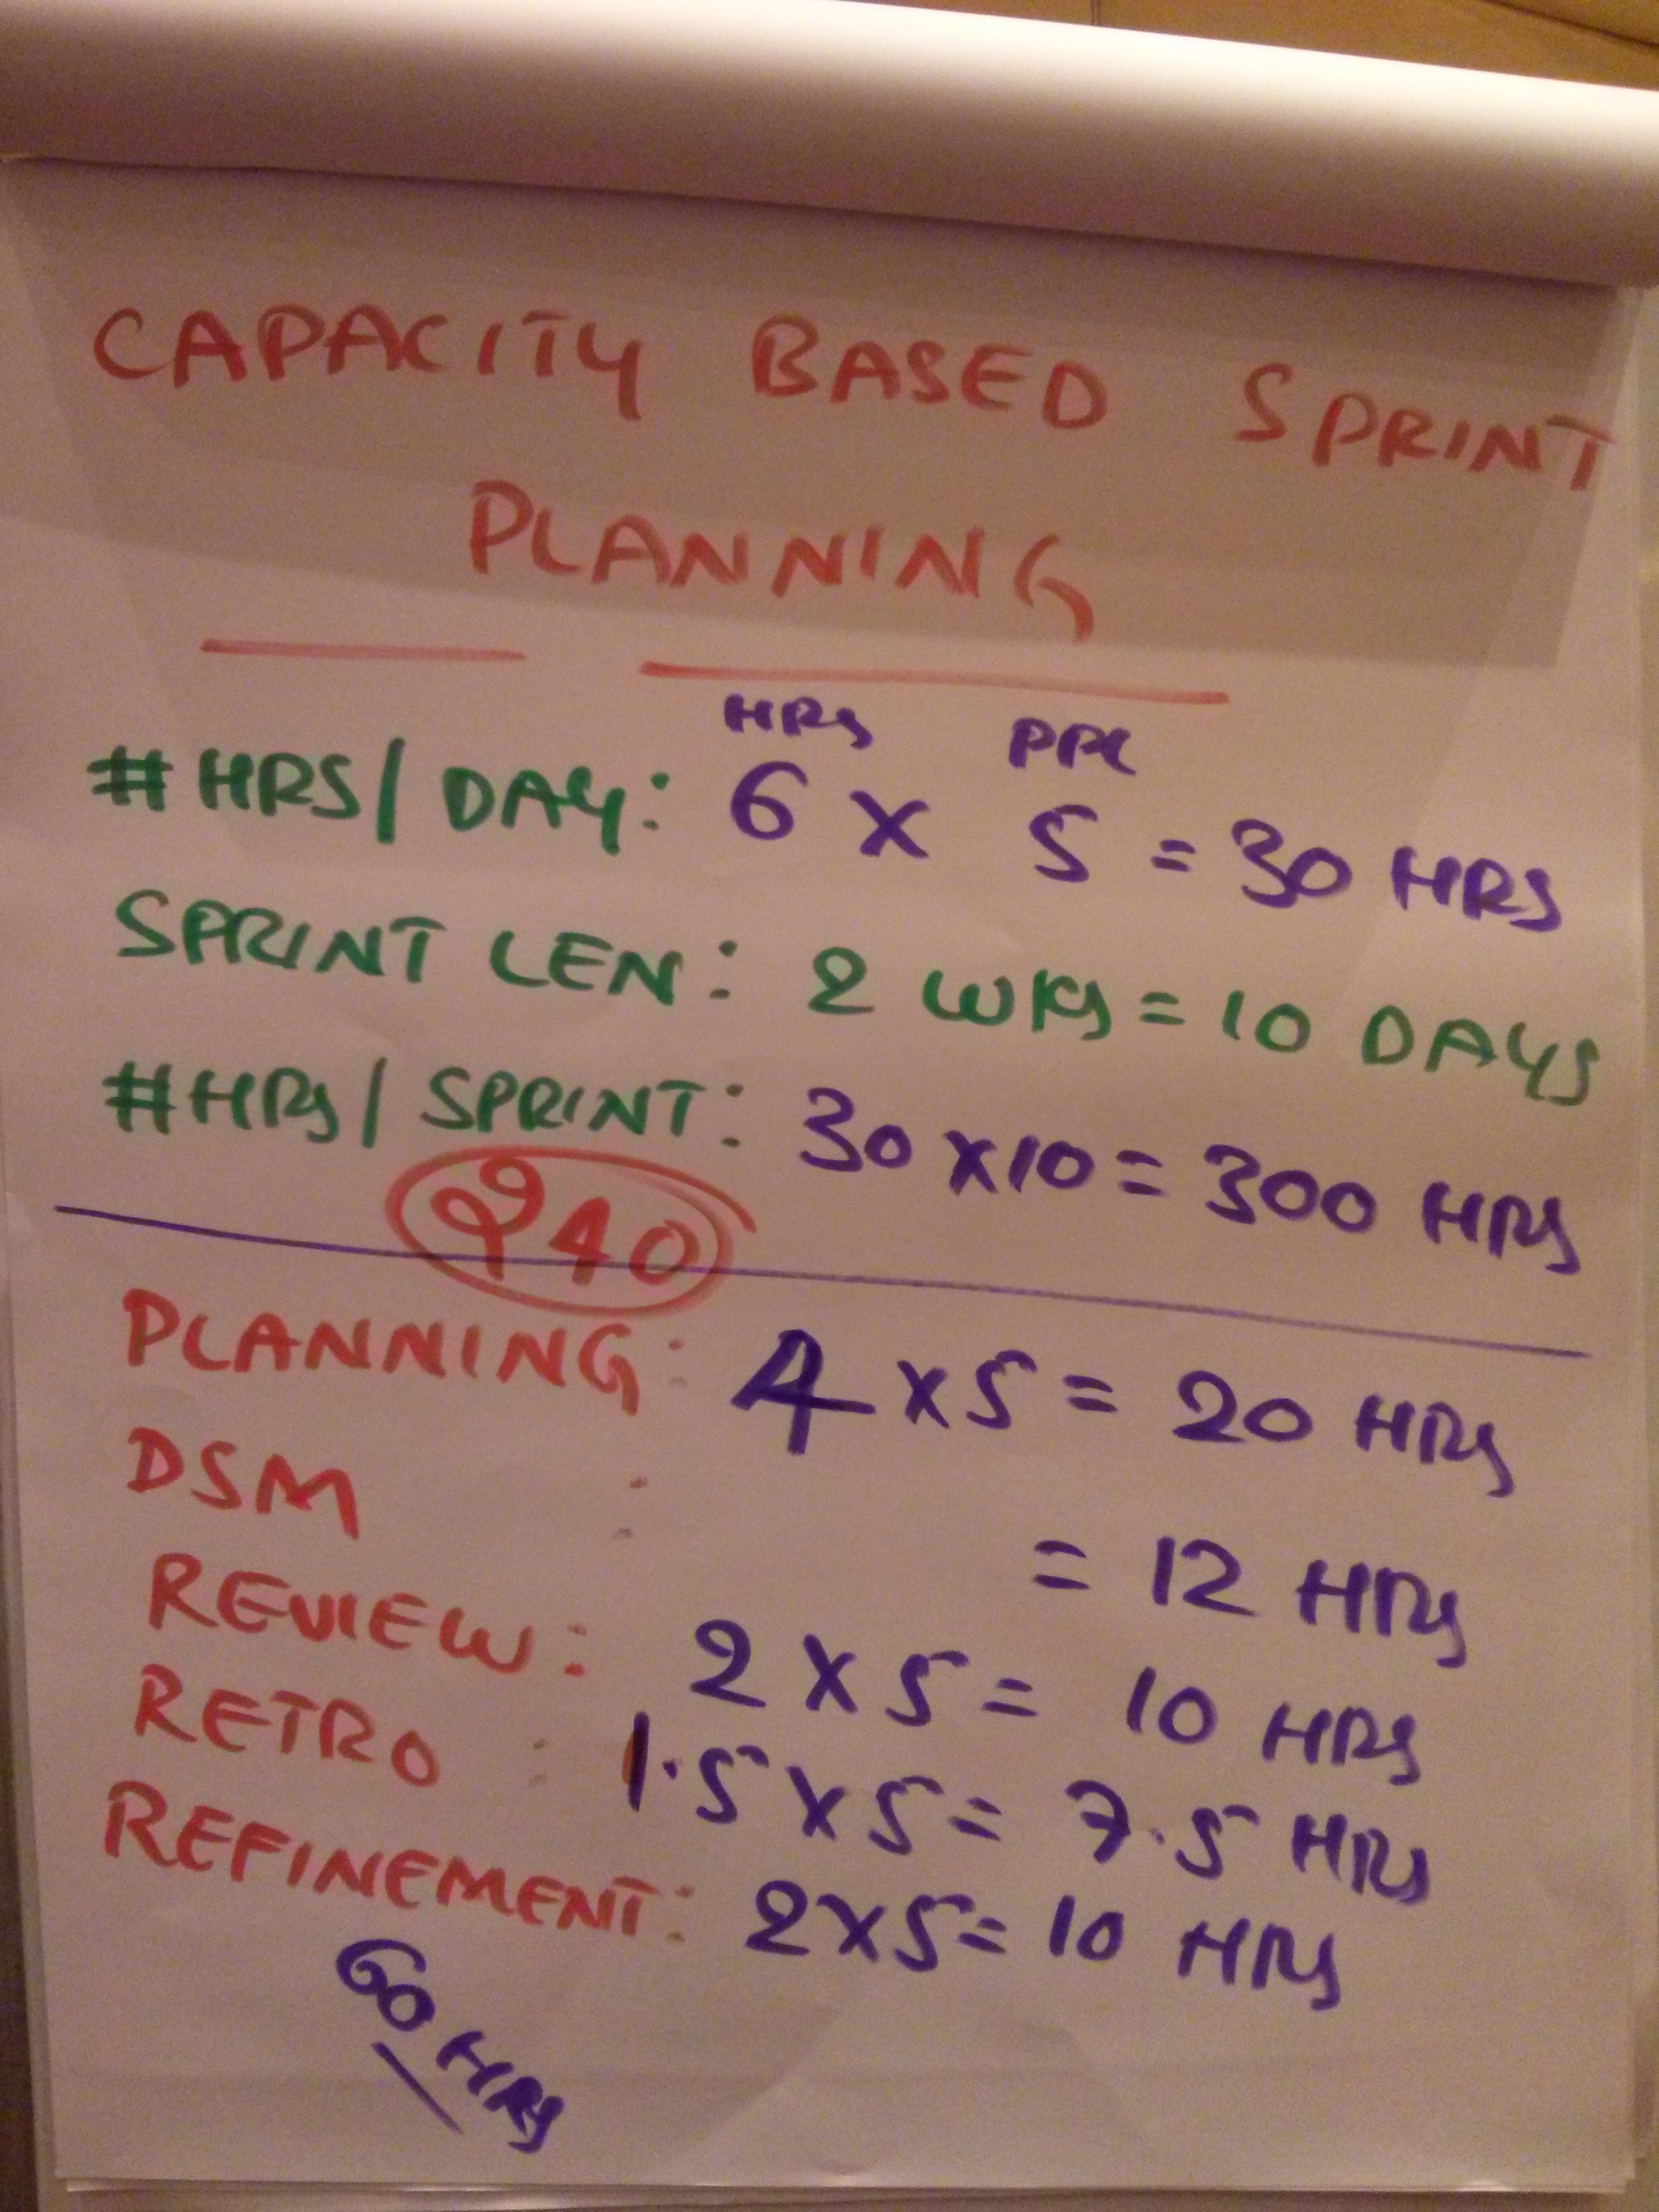 CAPACITY BASED SPRINT
PLANNING
HRS PPL
#HRS/DAY: 6 X 5 = 30 HRS
SPRINT LEN: 2 WKS = 10 DAYS
#HRS/SPRINT: 30 X 10 = 300 HRS
240
PLANNING: 4 X 5 = 20 HRS
DSM : = 12 HRS
REVIEW: 2 X 5 = 10 HRS
RETRO : 1.5 X 5 = 7.5 HRS
REFINEMENT: 2 X 5 = 10 HRS
60 HRS